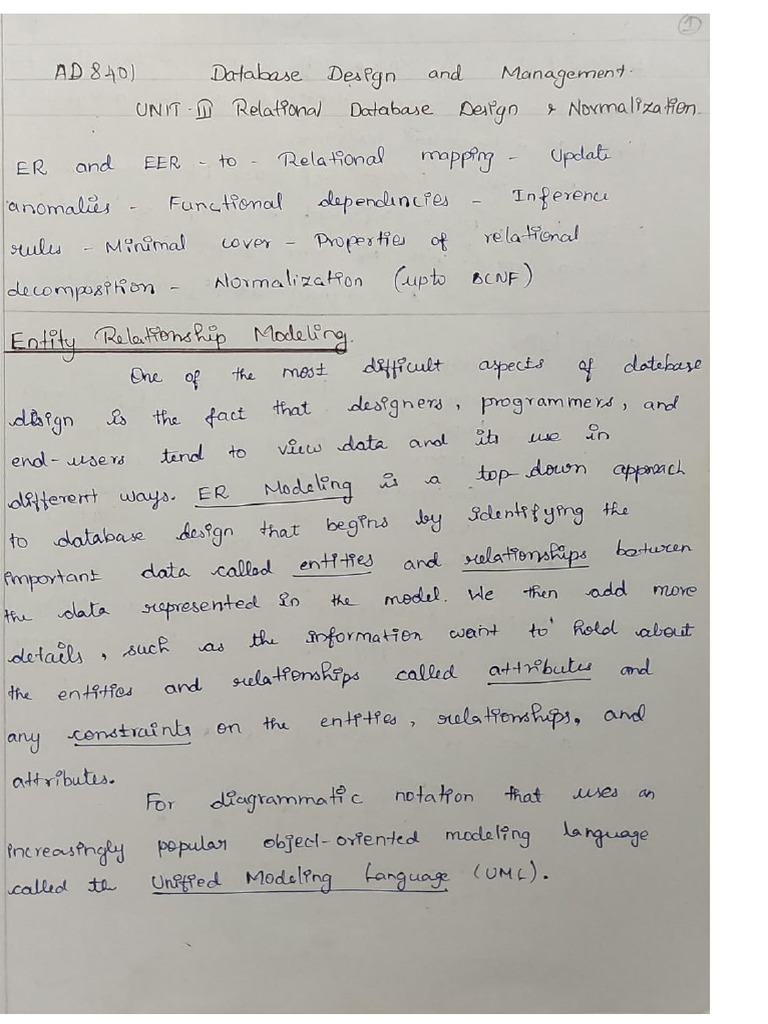 1
AD8401 Database Design and Management.
UNIT-II Relational Database Design & Normalization.
ER and EER - to - Relational mapping - Update
anomalies - Functional dependencies - Inference
rules - Minimal cover - Properties of relational
decomposition - Normalization (upto BCNF)
Entity Relationship Modeling.
One of the most difficult aspects of database
design is the fact that designers, programmers, and
end-users tend to view data and its use in
different ways. ER Modeling is a top-down approach
to database design that begins by identifying the
important data called entities and relationships between
the data represented in the model. We then add more
details, such as the information want to hold about
the entities and relationships called attributes and
any constraints on the entities, relationships, and
attributes.
For diagrammatic notation that uses an
increasingly popular object-oriented modeling language
called the Unified Modeling Language (UML).